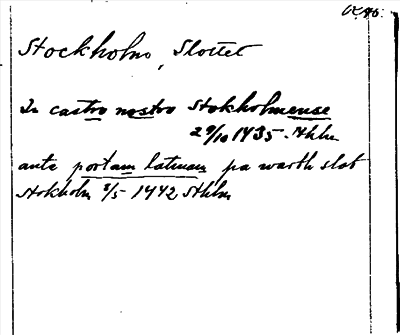 Stockholm, Slottet
In castro nostro Stokholmense
29/10 1435 Sthlm
ante portam latinam pa warth slot
Stokholm 8/5 1442 Sthlm